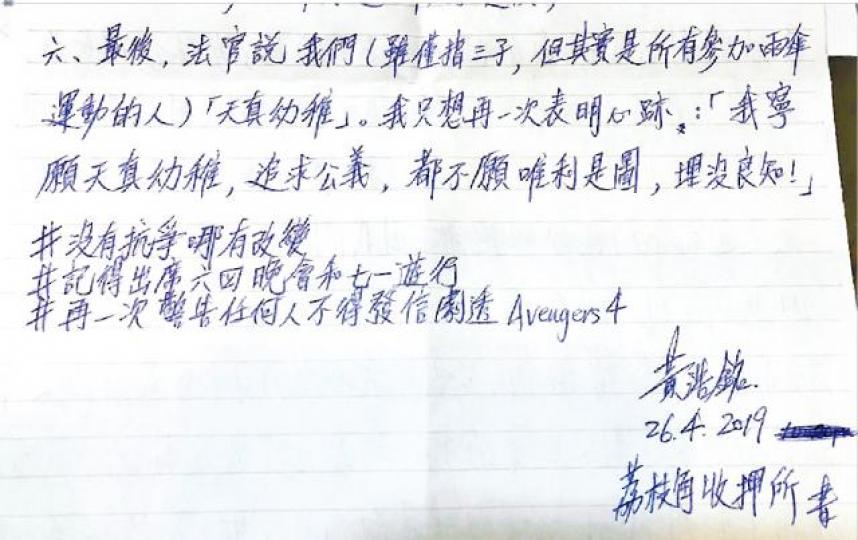 六、最後，法官說我們（雖僅指三子，但其實是所有參加雨傘
運動的人）「天真幼稚」。我只想再一次表明心跡：「我寧
願天真幼稚，追求公義，都不願唯利是圖，埋没良知！」
#没有抗爭哪有改變
#記得出席六四晚會和七一遊行
#再一次警告任何人不得發信劇透 Avengers 4
黃浩銘
26.4.2019
荔枝角收押所書